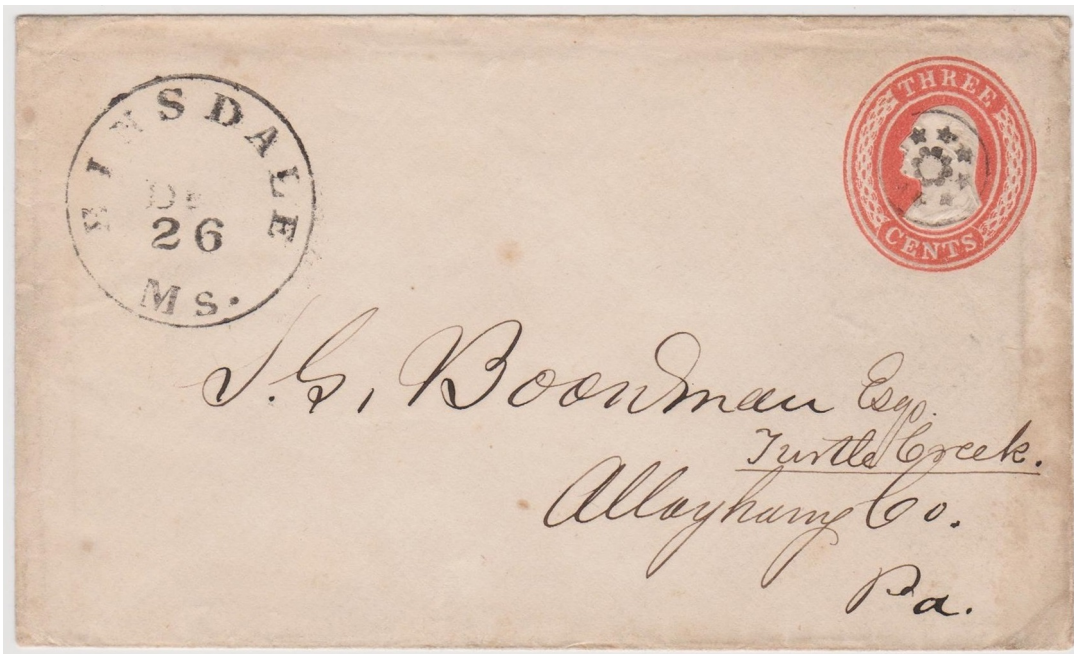 HINSDALE
De
26
Ms.
THREE
CENTS
S. G. Boordman Esqr.
Turtle Creek.
Alleyhany Co.
Pa.